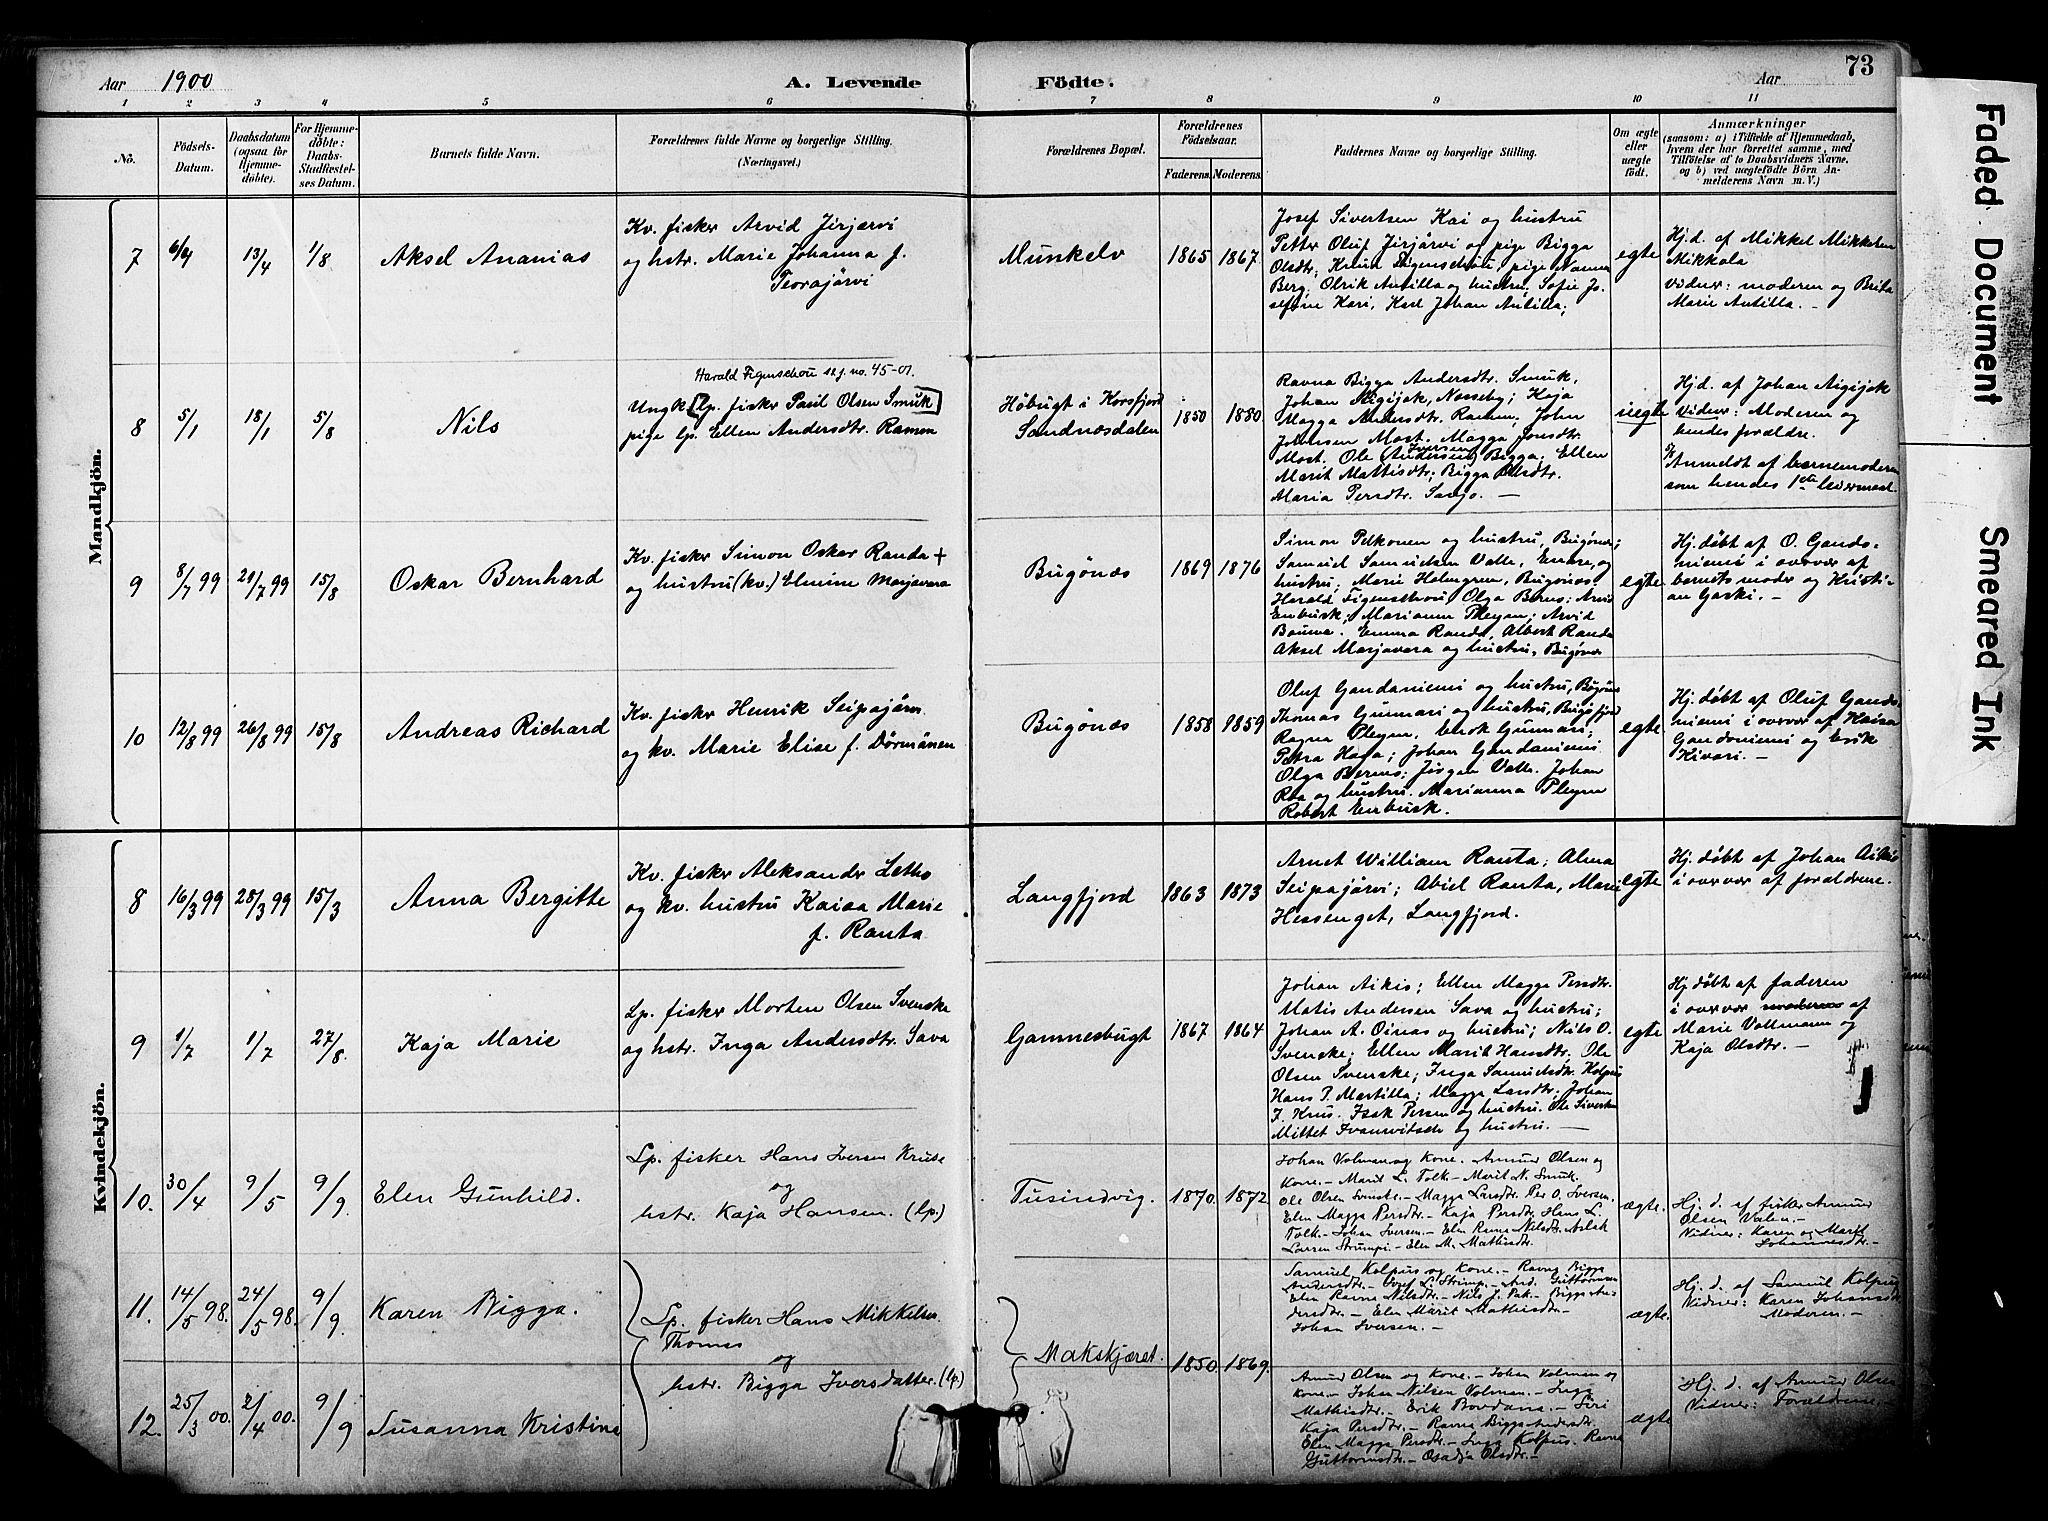 Aar 1900
A. Levende Födte.
Aar
73
1 2 3 4 5 6 7 8 9 10 11
No.
Födsels-Datum.
Daabsdatum (ogsaa for Hjemmedöbte).
For Hjemmedöbte: Daabs-Stadfæstelses Datum.
Barnets fulde Navn.
Forældrenes fulde Navne og borgerlige Stilling. (Næringsvei.)
Forældrenes Bopæl.
Forældrenes Födselsaar.
Faderens. Moderens.
Faddernes Navne og borgerlige Stilling.
Om ægte eller uægte födt.
Anmærkninger
(saasom: a) i Tilfælde af Hjemmedaab, hvem der har forrettet samme, med Tilföielse af to Daabsvidners Navne, og b) ved uægtefödte Börn Anmelderens Navn m. V.)
Mandkjön.
7 6/4 13/4 1/8 Aksel Ananias
Kv. fisker Arvid Jirjærvi
og hstr. Marie Johanna f.
Teorajärvi
Munkelv 1865 1867
Josef Sivertsen Kai og hustru
Petter Oluf Jirjärvi og pige Bigga
Olsdtr; Knud Figenschou, pige Nanna
Berg, Olrik Antilla og hustru; Sofie Jo-
sefine Kari, Karl Johan Antilla;
egte
Hj.d. af Mikkel Mikkelsen
Mikkola
Vidner: moderen og Brita
Marie Antilla. -
8 5/1 18/1 5/8 Nils
Harald Figenschou sk.j. no. 45-01.
Ungk. [lp. fisker Paul Olsen Smuk]
pige lp. Ellen Andersdtr. Ramen
Høbugt i Korsfjord
Sandnæsdalen
1850 1880
Ravna Bigga Andersdtr. Smuk,
Johan Aigijok, Nesseby; Kaja
Magga Andersdtr. Ramen; John
Johnsen Most. Magga Jonsdtr.
Most. Ole (Andersen) Iversen Bigga; Ellen
Marit Mattisdtr; Bigga Olsdtr.
Maria Persdtr. Sarijo. -
uegte
Hj.d. af Johan Aigijok
Vidner: Moderen og
hendes forældre.
Anmeldt af barnemoderen
som hendes 1ste leiermaal.
9 8/7 99 21/7 99 15/8 Oskar Bernhard
Kv. fisker Simon Oskar Randa +
og hustru (kv.) Elmine Marjavara
Bugönæs 1869 1876
Simon Pelkonen og hustru, Bugönæs;
Samuel Samuelsen Valle, Enare, og
hustru; Marie Holmgren, Bugönæs
Harald Figenschou, Olga Berns; Arvid
Enbusk; Marianna Pleym; Arvid
Bouma. Emma Randa, Albert Randa
Aksel Marjavara og hustru, Bugönæs
egte
Hj. döbt af O. Ganda-
niemi i overvær af
barnets moder og Kristi-
an Gaski. -
10 12/8 99 26/8 99 15/8 Andreas Richard
Kv. fisker Henrik Seipajärvi
og kv. Marie Elise f. Dörmänen
Bugönæs 1858 1859
Oluf Gandaniemi og hustru, Bugönæs
Thomas Gunnari og hustru, Bugöfjord
Ragna Pleym, Enok Gunnari;
Petra Haga; Johan Gandaniemi
Olga Berns; Jörgen Valle. Johan
Roa og hustru. Marianna Pleym
Robert Enbusk.
egte
Hj. döbt af Oluf Ganda-
niemi i overvær af Kaisa
Gandaniemi og Erik
Kivari. -
Kvindekjön.
8 16/3 99 28/3 99 15/3 Anna Bergitte
Kv. fisker Aleksander Letho
og kv. hustru Kaisa Marie
f. Ranta
Langfjord 1863 1873
Arnet William Ranta; Alma
Seipajärvi; Abiel Ranta, Marie
Hessenget, Langfjord.
egte
Hj. döbt af Johan Aikio
i overvær af forældrene.
9 1/7 1/7 27/8. Kaja Marie
Lp. fisker Morten Olsen Svenske
og hstr. Inga Andersdtr. Sava
Gamnesbugt 1867 1864
Johan Aikis; Ellen Magga Persdtr.
Matis Andersen Sava og hustru;
Johan A. Oinas og hustru; Nils O.
Svenske; Ellen Marit Hansdtr; Ole
Olsen Svenske; Inga Samuelsdtr. Kolpus
Hans P. Martilla; Magga Larsdtr; Johan
J. Krus. Isak Persen og hustru. Ole Sivertsen
Mittet Ivanvitsch og hustru. -
egte
Hj. döbt af faderen
i overvær moderen af
Marie Vollmann og
Kaja Olsdtr. -
10. 30/4 9/5 9/9. Elen Gunhild.
Lp. fisker Hans Iversen Kruse
og
hstr. Kaja Hansen. (lp.)
Tusindvig. 1870. 1872.
Johan Volman og Kone. Amund Olsen og
Kone. - Marit L. Tolk. - Marit N. Smuk.
Ole Olsen Svenske. - Magga Larsdtr. Per O. Iversen.
Elen Magga Persdtr. - Kaja Persdtr. Hans L.
Tolk. - Johan Iversen. - Elen Ravna Nilsdtr. Aslak
Larsen Strumpi. - Elen M. Mathisdtr.
ægte.
Hj. d. af fisker Amund
Olsen Valen. -
Vidner: Karen og Marit
Johannesdtr. -
11. 14/5 98. 24/5 98. 9/9. Karen Bigga.
Lp. fisker Hans Mikkelsen
Thomas
og
hstr. Bigga Iversdatter. (lp.)
Makskjæret. 1850. 1869.
Samuel Kolpus og Kone. - Ravna Bigga
Andersdtr. Josef L. Strump. - And. Guttormsen
Elen Ravna Nilsdtr. - Nils J. Pak. - Bigga An-
dersdtr. - Elen Marit Mathisdtr. -
Johan Iversen. -
ægte.
Hj. d. af Samuel Kolpus
Vidner: Karen Johansdtr
Moderen. -
12. 25/3 00. 2/4 00. 9/9 Susanna Kristine
Amund Olsen og Kone. - Johan Volman og
Kone. - Johan Nilsen Volman. - Inga
Mathisdtr. - Erik Bordana. - Siri
Kaja Persdtr. - Ravna Bigga Andersdtr.
Elen Magga Persdtr. - Inga Kolpus. Ravna
Guttormsdtr. - Osadja Olsdtr. -
ægte
Hj. d. af Amund Olsen
Vidner: Forældrene. -
Faded Document
Smeared Ink